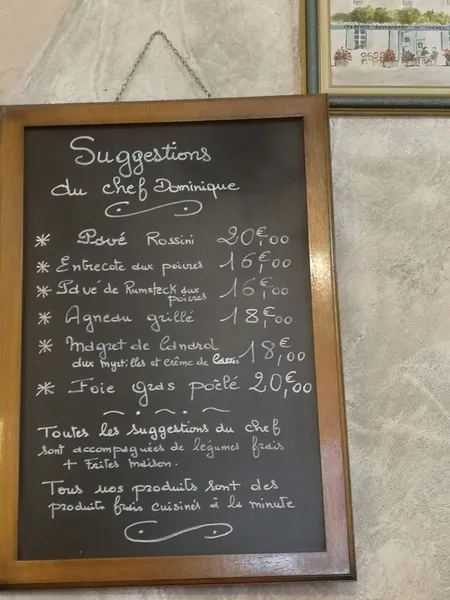 Suggestions
du chef Dominique
* Pavé Rossini 20€,00
* Entrecote aux poivres 16€,00
* Pavé de Rumsteck aux poivres 16€,00
* Agneau grillé 18€,00
* Magret de Canard
aux myrtilles et crème de Cassis 18€,00
* Foie gras poêlé 20€,00
Toutes les suggestions du chef
sont accompagnées de légumes frais
+ Frites Maison.
Tous nos produits sont des
produits frais cuisinés à la minute